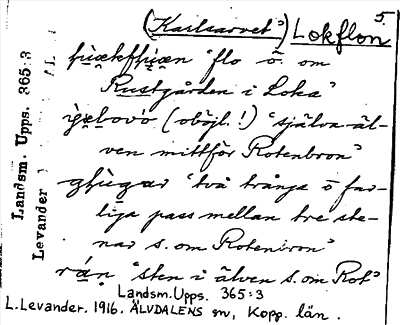 5.
(Karlsarvet) Lokflon
"flo ö. om
Rustgården i Loka"
(oböjl.!) "själva äl-
ven mittför Rotenbron"
"två trånga o far-
liga pass mellan tre ste-
nar s. om Rotenbron"
"sten i älven s. om Rot"
Landsm. Upps. 365:3
L. Levander. 1916. ÄLVDALENS sn, Kopp. län.
Landsm. Upps. 365:3
Levander